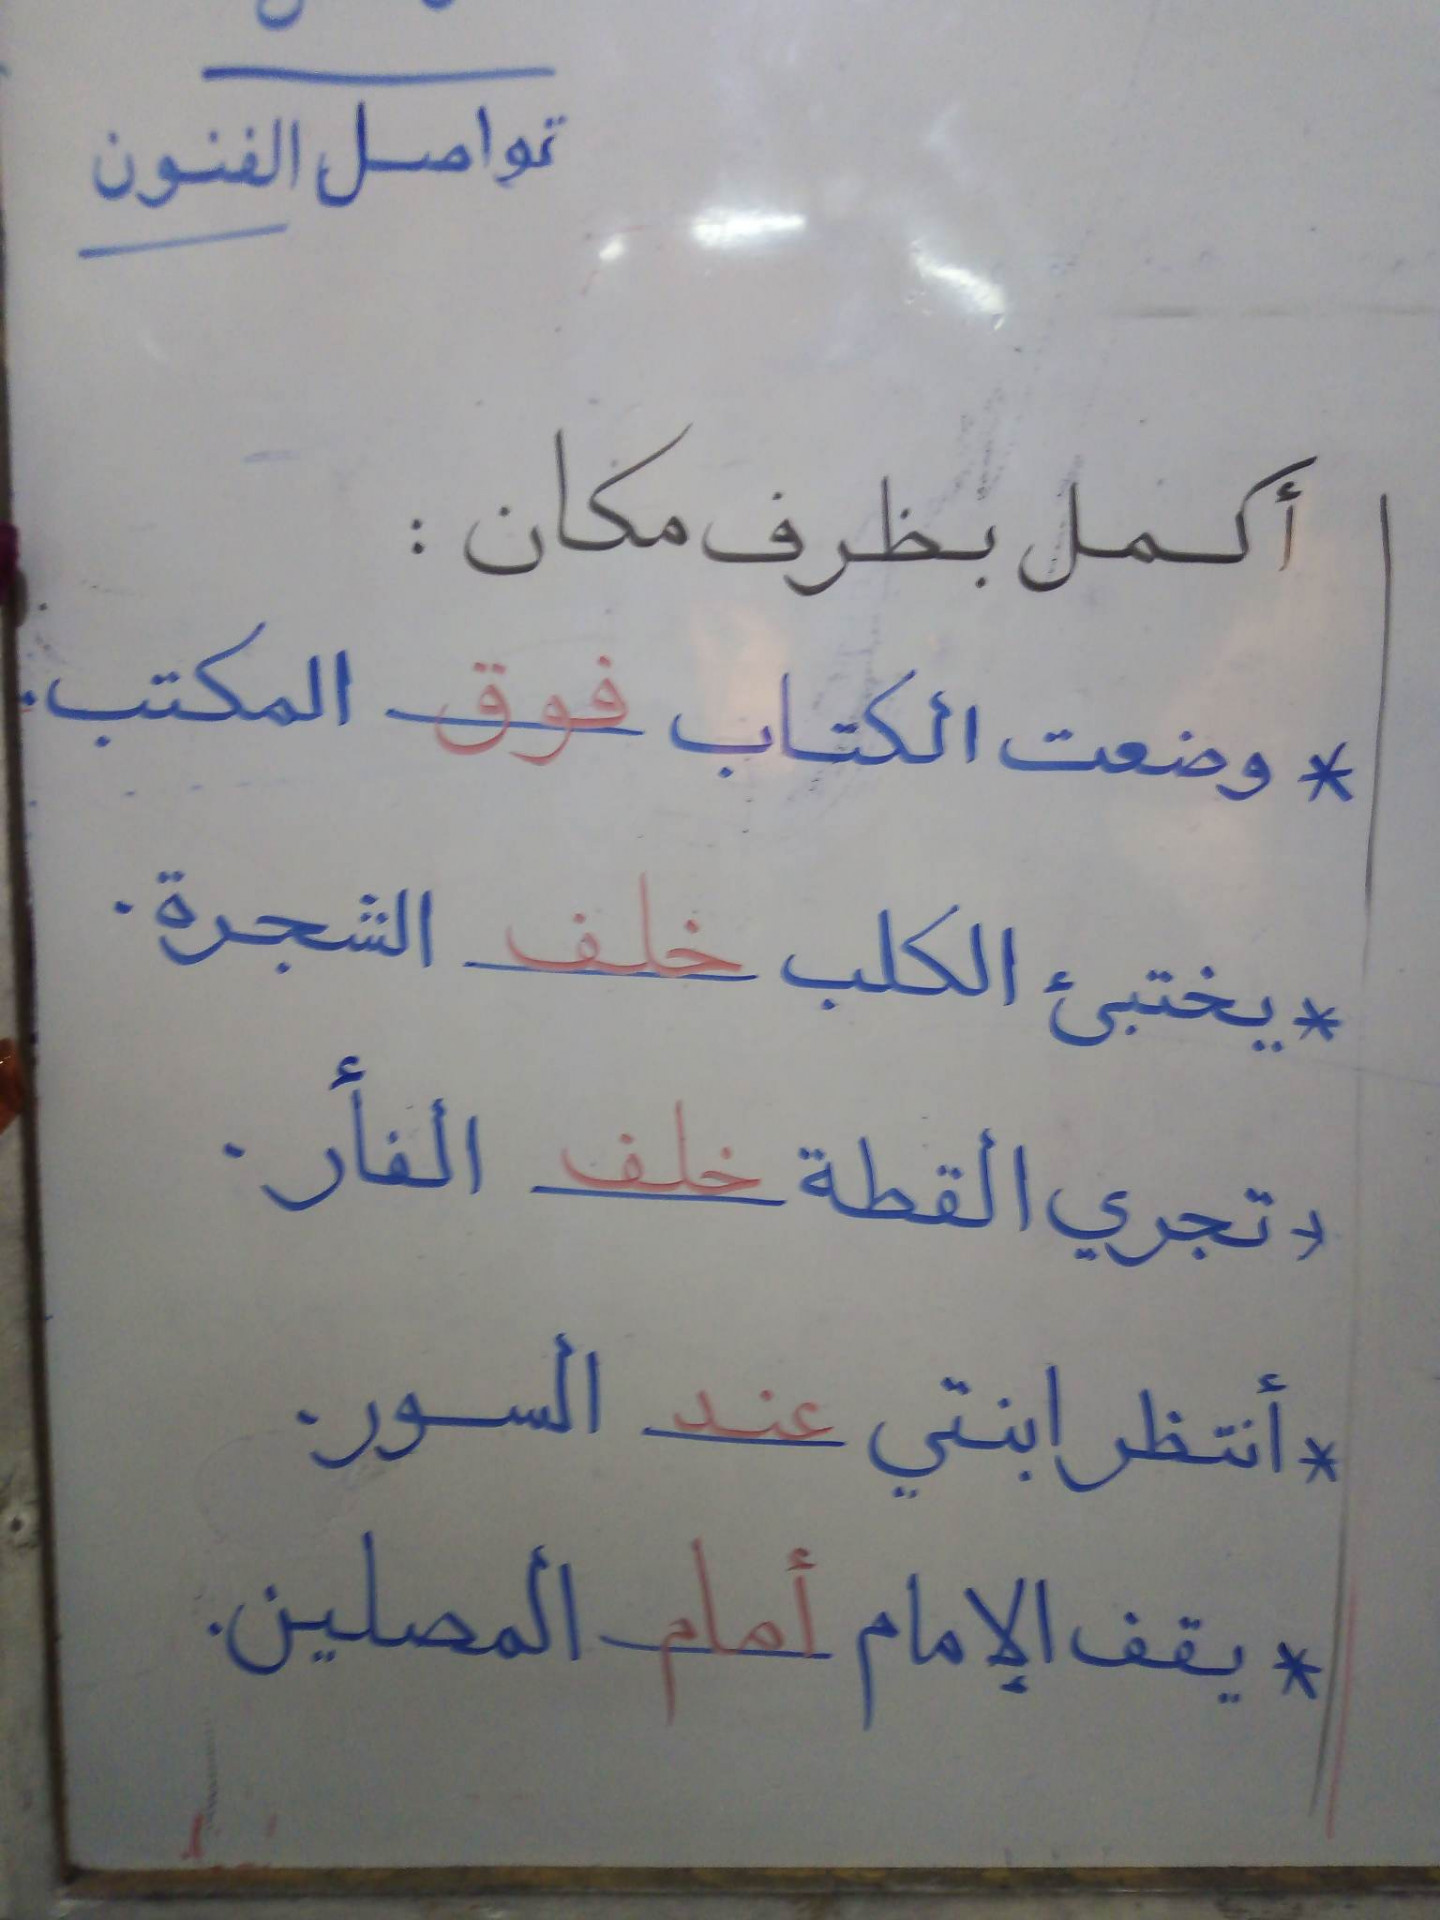 تواصل الفنون
أكمل بظرف مكان :
* وضعت الكتاب فوق المكتب.
* يختبئ الكلب خلف الشجرة.
* تجري القطة خلف الفأر.
* أنتظر ابنتي عند السور.
* يقف الإمام أمام المصلين.